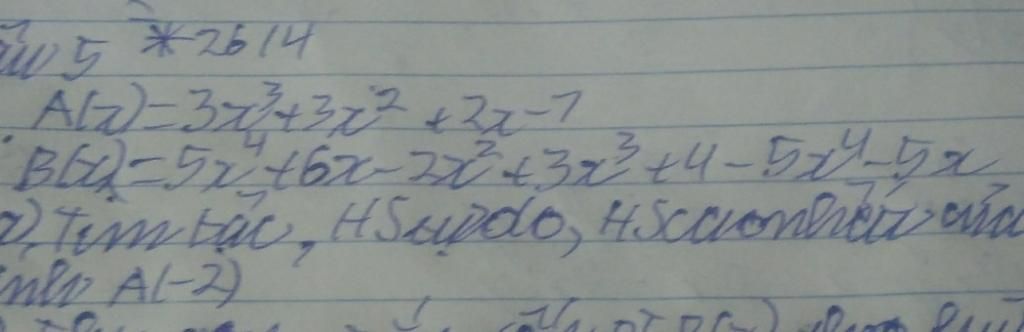 5 * 26/4
A(x)=3x³+3x²+2x-7
B(x)=5x⁴+6x-2x²+3x³+4-5x⁴-5x
a), Tìm bậc, HS tự do, HS cao nhất của
A(-2)